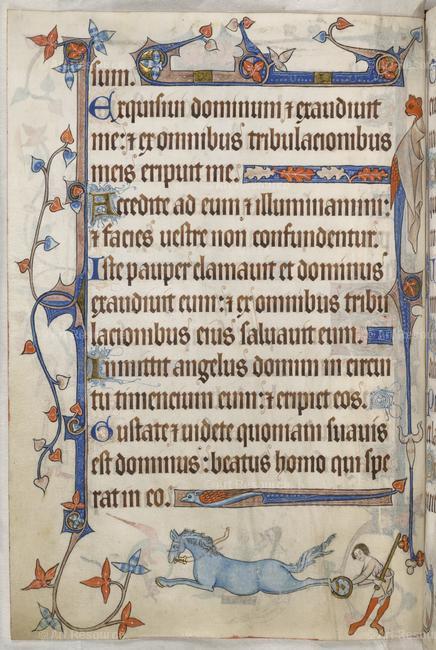 sum.
Exquisiui dominum ⁊ exaudiuit
me: ⁊ ex omnibus tribulacionibus
meis eripuit me.
Accedite ad eum ⁊ illuminamini:
⁊ facies uestre non confundentur.
Iste pauper clamauit et dominus
exaudiuit eum: ⁊ ex omnibus tribu
lacionibus eius saluauit eum.
Inmittit angelus domini in circui
tu timencium eum: ⁊ eripiet eos.
Gustate ⁊ uidete quoniam suauis
est dominus: beatus homo qui spe
rat in eo.